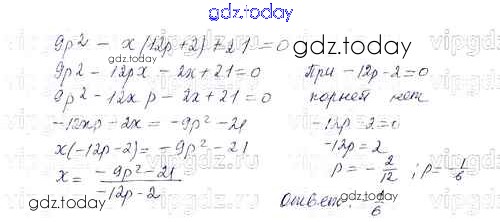 gdz.today
9p² - x(12p+2)+21=0
gdz.today
9p² - 12px - 2x+21=0
9p² - 12xp - 2x+21=0
-12xp - 2x = -9p² - 21
x(-12p-2) = -9p² - 21
x = (-9p² - 21)/(-12p - 2)
При -12p-2=0
корней нет
-12p-2=0
-12p=2
p = -2/12 ; p = -1/6
Ответ: -1/6
gdz.today